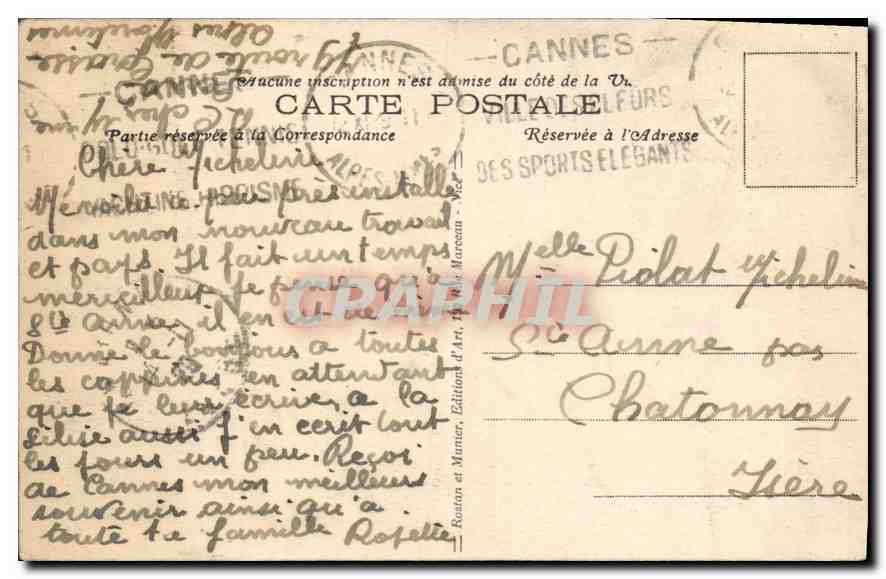 Aucune inscription n'est admise du côté de la
CARTE POSTALE
Partie réservée à la Correspondance
Réservée à l'Adresse
CANNES
VILLE FLEURS
DES SPORTS ELEGANTS
CANNES
Chère Micheline
Me voilà a peu près installé
dans mon nouveau travail
et pays. Il fait un temps
merveilleux je pense qu'à
Ste Anne il en
Donne le bonjour a toutes
les copines en attendant
que je leur écrive, a la
aussi J'en ecrit tout
les jours un peu. Reçoi
de Cannes mon meilleurs
souvenir ainsi qu'a
toute ta famille Rosette
chez
79 route de Grasse
Alpes Maritimes
Rostan et Munier, Editions d'Art, rue Marceau - Nice
CRAPHIL
Melle Piolat Micheline
Ste Anne par
Chatonnay
Isère